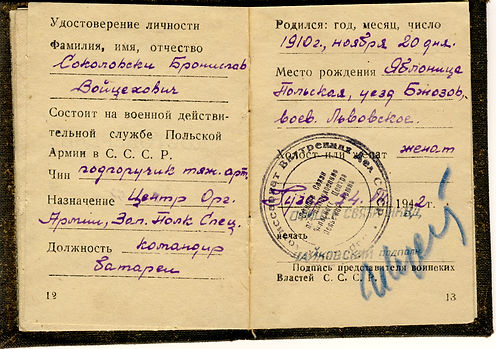 Удостоверение личности
Фамилия, имя, отчество
Соколовски Бронислав
Войцехович
Состоит на военной действи-
тельной службе Польской
Армии в С. С. С. Р.
Чин подпоручик тяж. арт.
Назначение Центр Орг.
Армии, Зап. Полк Спец.
Должность командир
батареи
12
Родился: год, месяц, число
1910г., ноября 20 дня.
Место рождения Яблоница
Польская, уезд Бжозов,
воев. Львовское.
Холост или женат женат
Гузар 1942г.
Печать
ЧАЙКОВСКИЙ
Подпись представителя воинских
Властей С. С. С. Р.
13